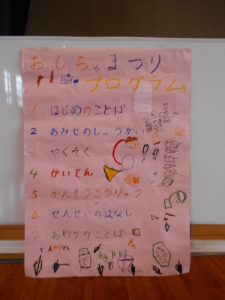 おもちゃまつり
プログラム
1 はじめのことば
2 おみせのしょうかい
3 やくそく
4 かいてん
5 がんそうこうりゅう
6 せんせいのはなし
7 おわりのことば